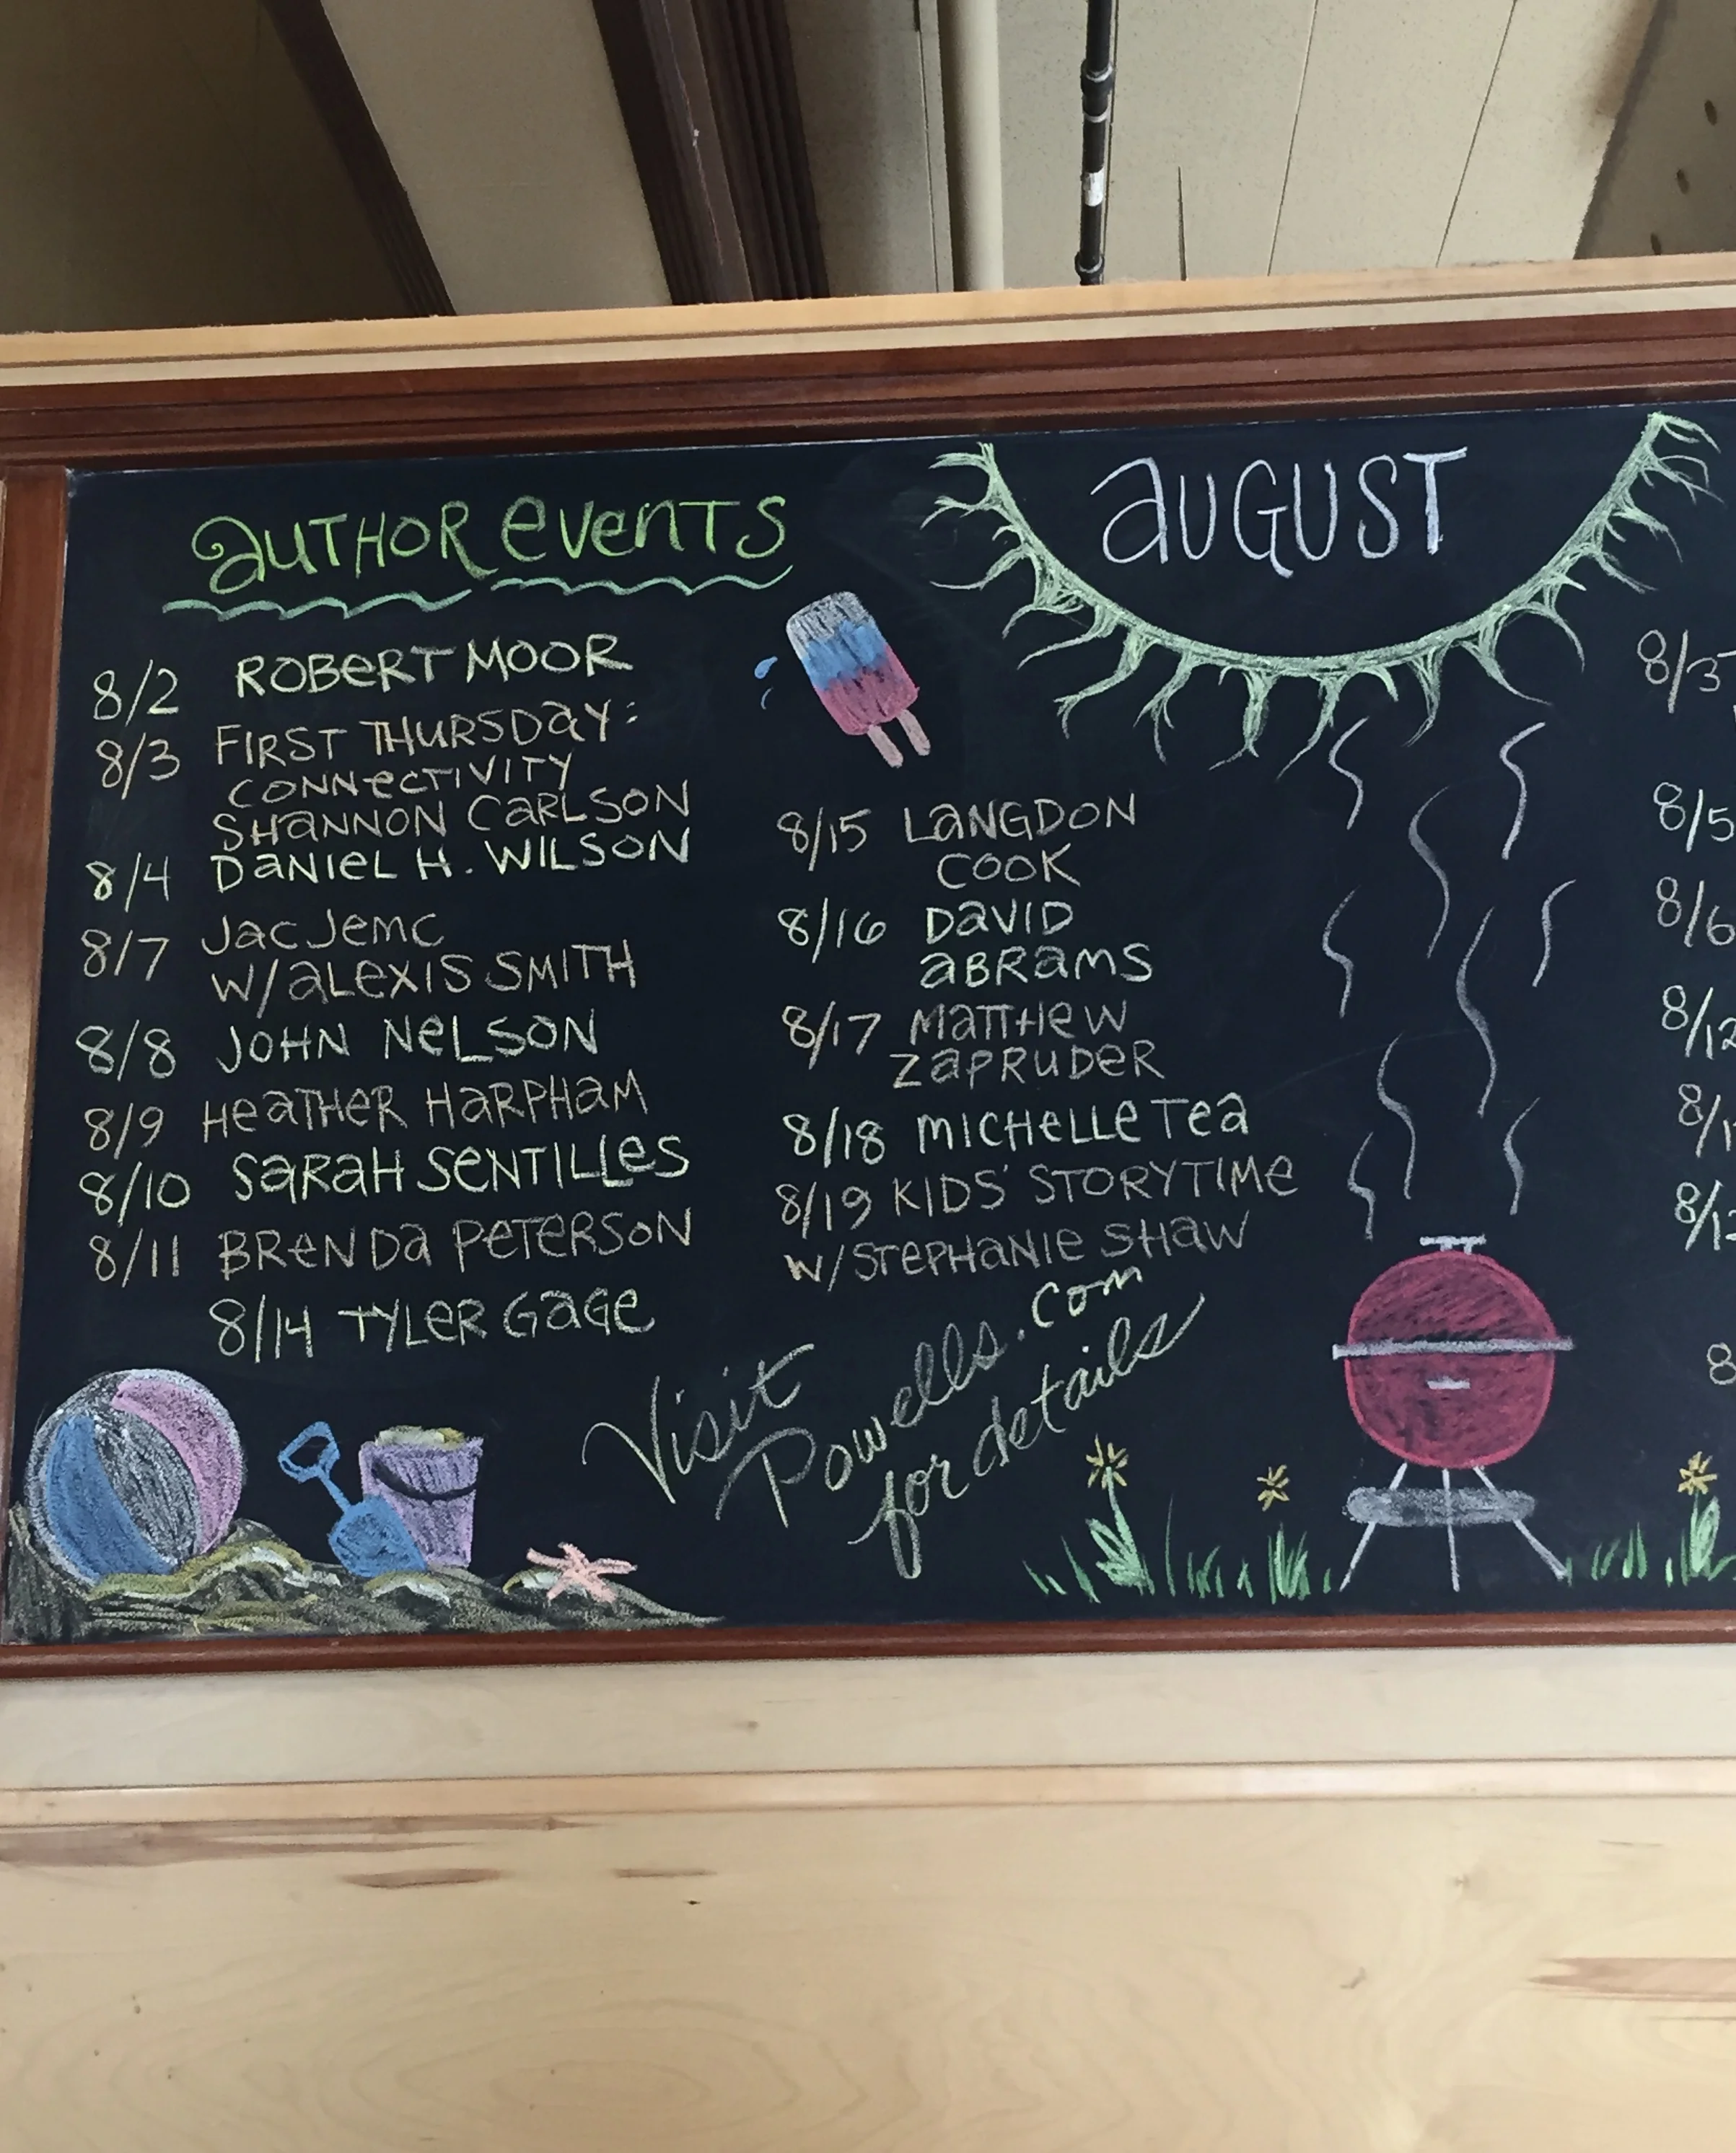 AUTHOR EVENTS
AUGUST
8/2 ROBERT MOOR
8/3 FIRST THURSDAY:
CONNECTIVITY
SHANNON CARLSON
8/4 DANIEL H. WILSON
8/7 Jac Jemc
W/ALEXIS SMITH
8/8 JOHN NELSON
8/9 HEATHER HARPHAM
8/10 SARAH SENTILLES
8/11 BRENDA PETERSON
8/14 TYLER GAGE
8/15 LANGDON
COOK
8/16 DAVID
ABRAMS
8/17 MATTHEW
ZAPRUDER
8/18 MICHELLE TEA
8/19 KIDS' STORYTIME
W/STEPHANIE SHAW
Visit
Powells.com
for details
8/3
8/5
8/6
8/12